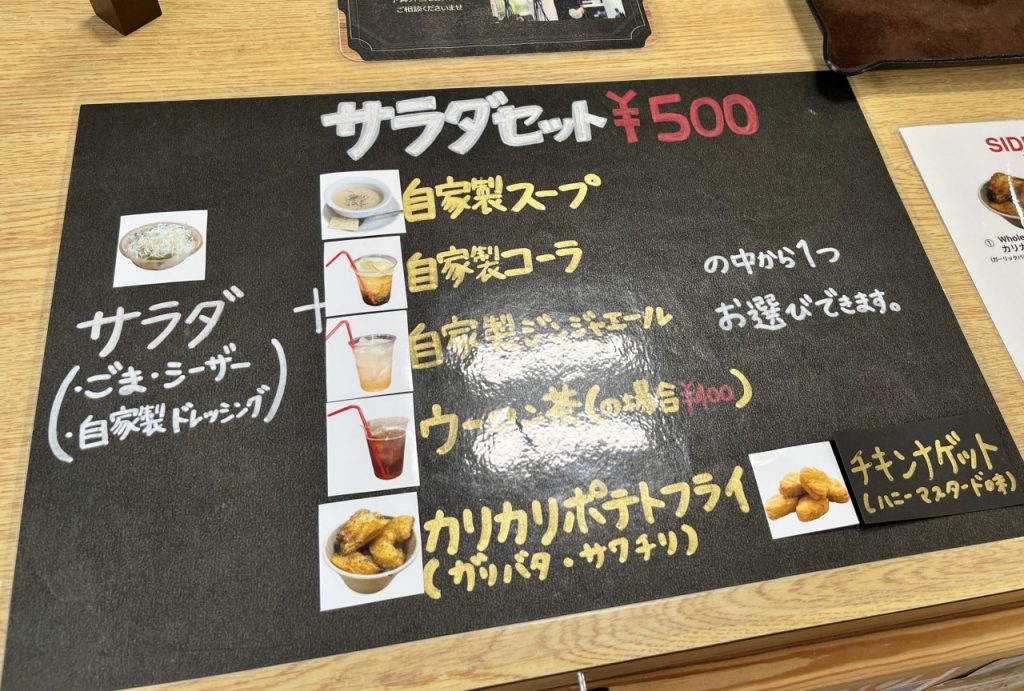 ご相談くださいませ
サラダセット ¥500
自家製スープ
自家製コーラ
自家製ジンジャエール
ウーロン茶(の場合¥400)
カリカリポテトフライ
(ガリバタ・サワチリ)
サラダ +
(・ごま・シーザー
・自家製ドレッシング)
の中から1つ
お選びできます。
チキンナゲット
(ハニーマスタード味)
① Whole
カリカ